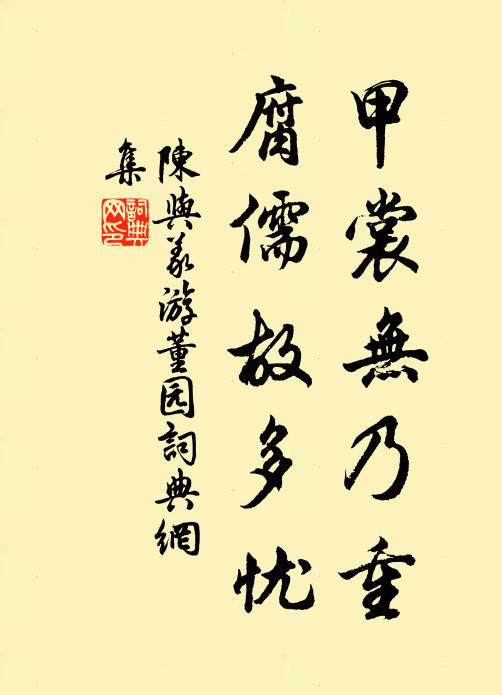 甲裳無乃重
腐儒故多忧
陳與義游董园詞典網
集
詞典
网印